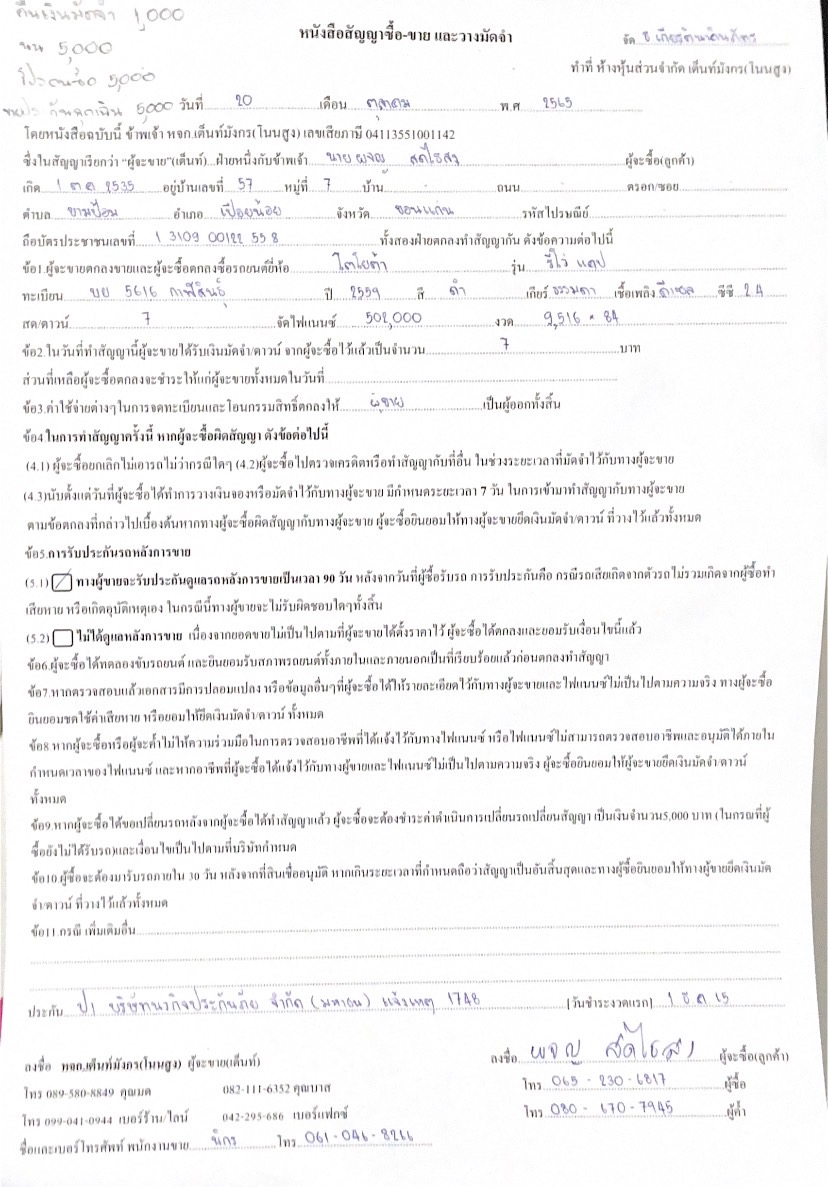 คืนเงินมัดจำ 1,000
5,000
5,000
5,000
หนังสือสัญญาซื้อ-ขาย และวางมัดจำ
จัด
ทำที่ ห้างหุ้นส่วนจำกัด เต็นท์มังกร(โนนสูง)
วันที่ 20 เดือน ตุลาคม พ.ศ 2565
โดยหนังสือฉบับนี้ ข้าพเจ้า หจก.เต็นท์มังกร(โนนสูง) เลขเสียภาษี 04113551001142
ซึ่งในสัญญาเรียกว่า "ผู้จะขาย"(เต็นท์) ฝ่ายหนึ่งกับข้าพเจ้า นาย ผจญ สดไธสง ผู้จะซื้อ(ลูกค้า)
เกิด 1 ต.ค 2535 อยู่บ้านเลขที่ 57 หมู่ที่ 7 บ้าน - ถนน ตรอก/ซอย
ตำบล ขามป้อม อำเภอ เปือยน้อย จังหวัด ขอนแก่น รหัสไปรษณีย์
ถือบัตรประชาชนเลขที่ 1 3109 00122 55 8 ทั้งสองฝ่ายตกลงทำสัญญากัน ดังข้อความต่อไปนี้
ข้อ1.ผู้จะขายตกลงขายและผู้จะซื้อตกลงซื้อรถยนต์ยี่ห้อ โตโยต้า รุ่น รีโว่ แคป
ทะเบียน บย 5616 กาฬสินธุ์ ปี 2559 สี ดำ เกียร์ ธรรมดา เชื้อเพลิง ดีเซล ซีซี 2.4
สด/ดาวน์ 7 จัดไฟแนนซ์ 502,000 งวด 9,516 × 84
ข้อ2.ในวันที่ทำสัญญานี้ผู้จะขายได้รับเงินมัดจำ/ดาวน์ จากผู้จะซื้อไว้แล้วเป็นจำนวน 7 บาท
ส่วนที่เหลือผู้จะซื้อตกลงจะชำระให้แก่ผู้จะขายทั้งหมดในวันที่
ข้อ3.ค่าใช้จ่ายต่างๆในการจดทะเบียนและโอนกรรมสิทธิ์ตกลงให้ ผู้ขาย เป็นผู้ออกทั้งสิ้น
ข้อ4.ในการทำสัญญาครั้งนี้ หากผู้จะซื้อผิดสัญญา ดังข้อต่อไปนี้
(4.1) ผู้จะซื้อยกเลิกไม่เอารถไม่ว่ากรณีใดๆ (4.2)ผู้จะซื้อไปตรวจเครดิตหรือทำสัญญากับที่อื่น ในช่วงระยะเวลาที่มัดจำไว้กับทางผู้จะขาย
(4.3)นับตั้งแต่วันที่ผู้จะซื้อได้ทำการวางเงินจองหรือมัดจำไว้กับทางผู้จะขาย มีกำหนดระยะเวลา 7 วัน ในการเข้ามาทำสัญญากับทางผู้จะขาย
ตามข้อตกลงที่กล่าวไปเบื้องต้นหากทางผู้จะซื้อผิดสัญญากับทางผู้จะขาย ผู้จะซื้อยินยอมให้ทางผู้จะขายยึดเงินมัดจำ/ดาวน์ ที่วางไว้แล้วทั้งหมด
ข้อ5.การรับประกันรถหลังการขาย
(5.1) ทางผู้ขายจะรับประกันดูแลรถหลังการขายเป็นเวลา 90 วัน หลังจากวันที่ผู้ซื้อรับรถ การรับประกันคือ กรณีรถเสียเกิดจากตัวรถ ไม่รวมเกิดจากผู้ซื้อทำ
เสียหาย หรือเกิดอุบัติเหตุเอง ในกรณีนี้ทางผู้ขายจะไม่รับผิดชอบใดๆทั้งสิ้น
(5.2) ไม่ได้ดูแลหลังการขาย เนื่องจากยอดขายไม่เป็นไปตามที่ผู้จะขายได้ตั้งราคาไว้ ผู้จะซื้อได้ตกลงและยอมรับเงื่อนไขนี้แล้ว
ข้อ6.ผู้จะซื้อได้ทดลองขับรถยนต์ และยินยอมรับสภาพรถยนต์ทั้งภายในและภายนอกเป็นที่เรียบร้อยแล้วก่อนตกลงทำสัญญา
ข้อ7.หากตรวจสอบแล้วเอกสารมีการปลอมแปลง หรือข้อมูลอื่นๆที่ผู้จะซื้อได้ให้รายละเอียดไว้กับทางผู้จะขายและไฟแนนซ์ไม่เป็นไปตามความจริง ทางผู้จะซื้อ
ยินยอมชดใช้ค่าเสียหาย หรือยอมให้ยึดเงินมัดจำ/ดาวน์ ทั้งหมด
ข้อ8.หากผู้จะซื้อหรือผู้จะค้ำไม่ให้ความร่วมมือในการตรวจสอบอาชีพที่ได้แจ้งไว้กับทางไฟแนนซ์ หรือไฟแนนซ์ไม่สามารถตรวจสอบอาชีพและอนุมัติได้ภายใน
กำหนดเวลาของไฟแนนซ์ และหากอาชีพที่ผู้จะซื้อได้แจ้งไว้กับทางผู้ขายและไฟแนนซ์ไม่เป็นไปตามความจริง ผู้จะซื้อยินยอมให้ผู้จะขายยึดเงินมัดจำ/ดาวน์
ทั้งหมด
ข้อ9.หากผู้จะซื้อได้ขอเปลี่ยนรถหลังจากผู้จะซื้อได้ทำสัญญาแล้ว ผู้จะซื้อจะต้องชำระค่าดำเนินการเปลี่ยนรถเปลี่ยนสัญญา เป็นเงินจำนวน5,000 บาท (ในกรณีที่ผู้
ซื้อยังไม่ได้รับรถ)และเงื่อนไขเป็นไปตามที่บริษัทกำหนด
ข้อ10.ผู้ซื้อจะต้องมารับรถภายใน 30 วัน หลังจากที่สินเชื่ออนุมัติ หากเกินระยะเวลาที่กำหนดถือว่าสัญญาเป็นอันสิ้นสุดและทางผู้ซื้อยินยอมให้ทางผู้ขายยึดเงินมัด
จำ/ดาวน์ ที่วางไว้แล้วทั้งหมด
ข้อ11.กรณี เพิ่มเติมอื่น
ประกัน ป1 บริษัทนวกิจประกันภัย จำกัด (มหาชน) แจ้งเหตุ 1748 [วันชำระงวดแรก] 1 ธ.ค 65
ลงชื่อ หจก.เต็นท์มังกร(โนนสูง) ผู้จะขาย(เต็นท์)
ลงชื่อ ผจญ สดไธสง ผู้จะซื้อ(ลูกค้า)
โทร 089-580-8849 คุณมด 082-111-6352 คุณบาส
โทร 065-230-6817 ผู้ซื้อ
โทร 099-041-0944 เบอร์ร้าน/ไลน์ 042-295-686 เบอร์แฟกซ์
โทร 080-670-7945 ผู้ค้ำ
ชื่อและเบอร์โทรศัพท์ พนักงานขาย นิกร โทร 061-046-8266